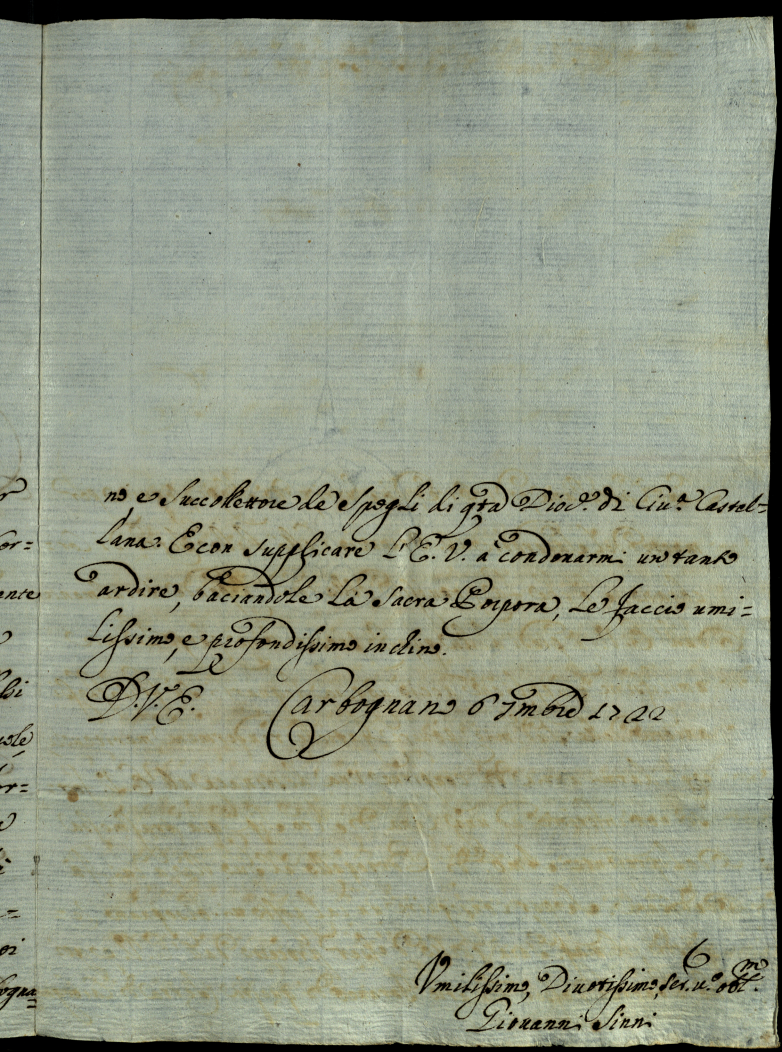 no, e Succollettore de spogli di qta Dioc.e di Ciu.a Castel=
lana. E con supplicare L'E. V. a condonarmi un tanto
ardire, baciandole la Sacra Porpora, le faccio umi=
lissimo, e profondissimo inchino.
D. V. E. Carbognano 6 7mbre 1722
Vmilissimo, Diuotissimo, Ser.u.e obl.mo
Giouanni Sinni